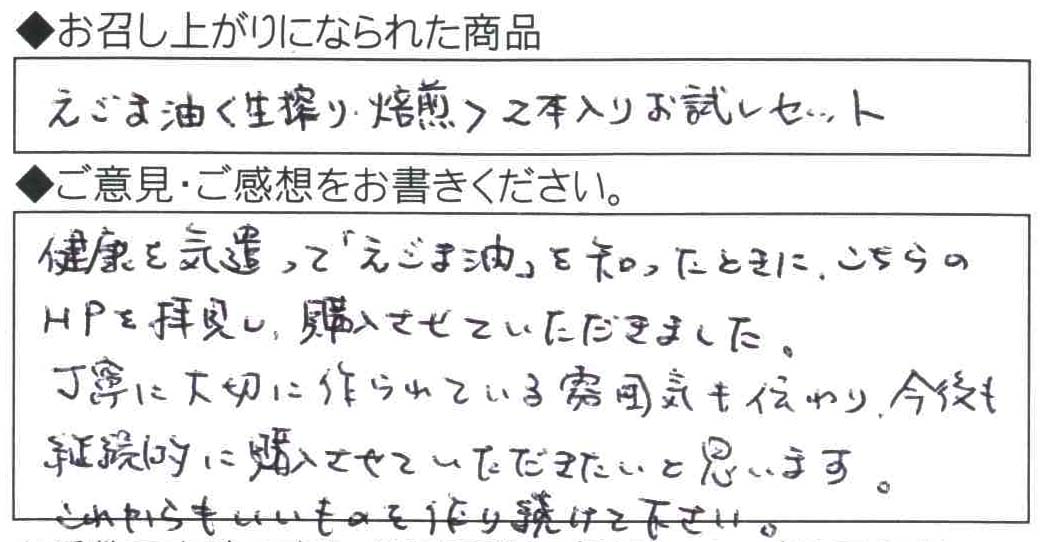 ◆お召し上がりになられた商品
えごま油<生搾り・焙煎>2本入りお試しセット
◆ご意見・ご感想をお書きください。
健康を気遣って「えごま油」を知ったときに、こちらの
HPを拝見し、購入させていただきました。
丁寧に大切に作られている雰囲気も伝わり、今後も
継続的に購入させていただきたいと思います。
これからもいいものを作り続けて下さい。